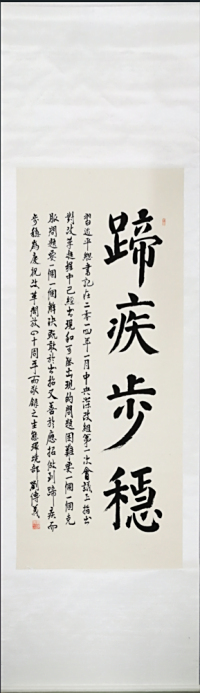 蹄疾步穩
習近平總書記在二零一四年一月中央深改組第一次會議上指出
對改革進程中已經出現和可能出現的問題困難要一個一個克
服問題要一個一個解決既敢於出招又善於應招做到蹄疾而
步穩為慶祝改革開放四十周年而敬錄之生態環境部 劉傳義